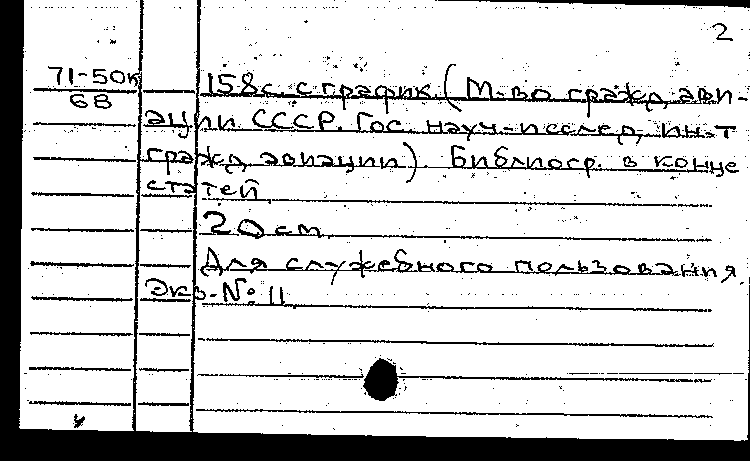 2
71-50к
68
158с. с график. (М-во гражд. ави-
ации СССР. Гос. науч-исслед. ин-т
гражд. авиации). Библиогр. в конце
статей.
20 см.
Для служебного пользования.
Экз. № 11.